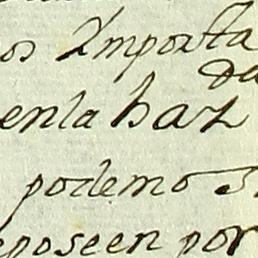 os Importa
da
enla haz
podemos
eposeen por